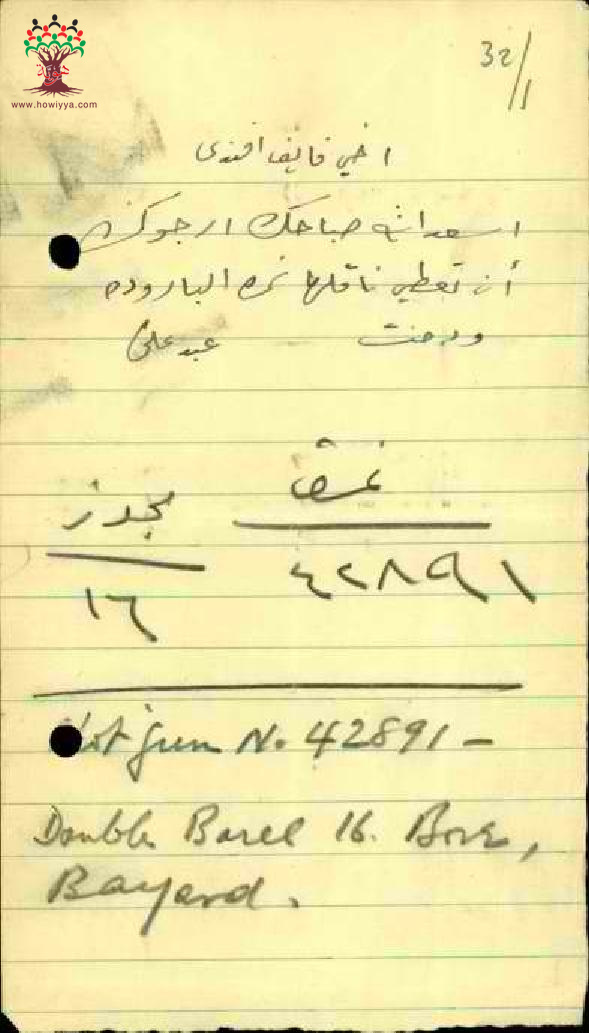 www.howiyya.com
32/1
اخي فايف افندي
اسعد الله صباحك ارجوك
أن تعطي ناقلها نمره الباروده
ودمت عبد علي
نمرة مجوز
٤٢٨٩١ ١٦
Shot gun No. 42891 -
Double Barell 16. Bore,
Bayard.